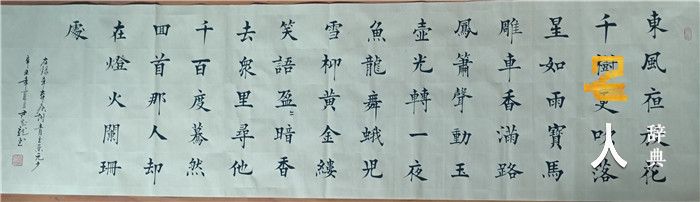 東風亱放花
千樹更吹落
星如雨寶馬
雕車香滿路
鳳簫聲動玉
壺光轉一夜
魚龍舞蛾兒
雪柳黃金縷
笑語盈〻暗香
去衆里尋他
千百度驀然
回首那人却
在燈火闌珊
處
右錄辛棄疾詞青玉案元夕
辛丑年夏月
名人辞典